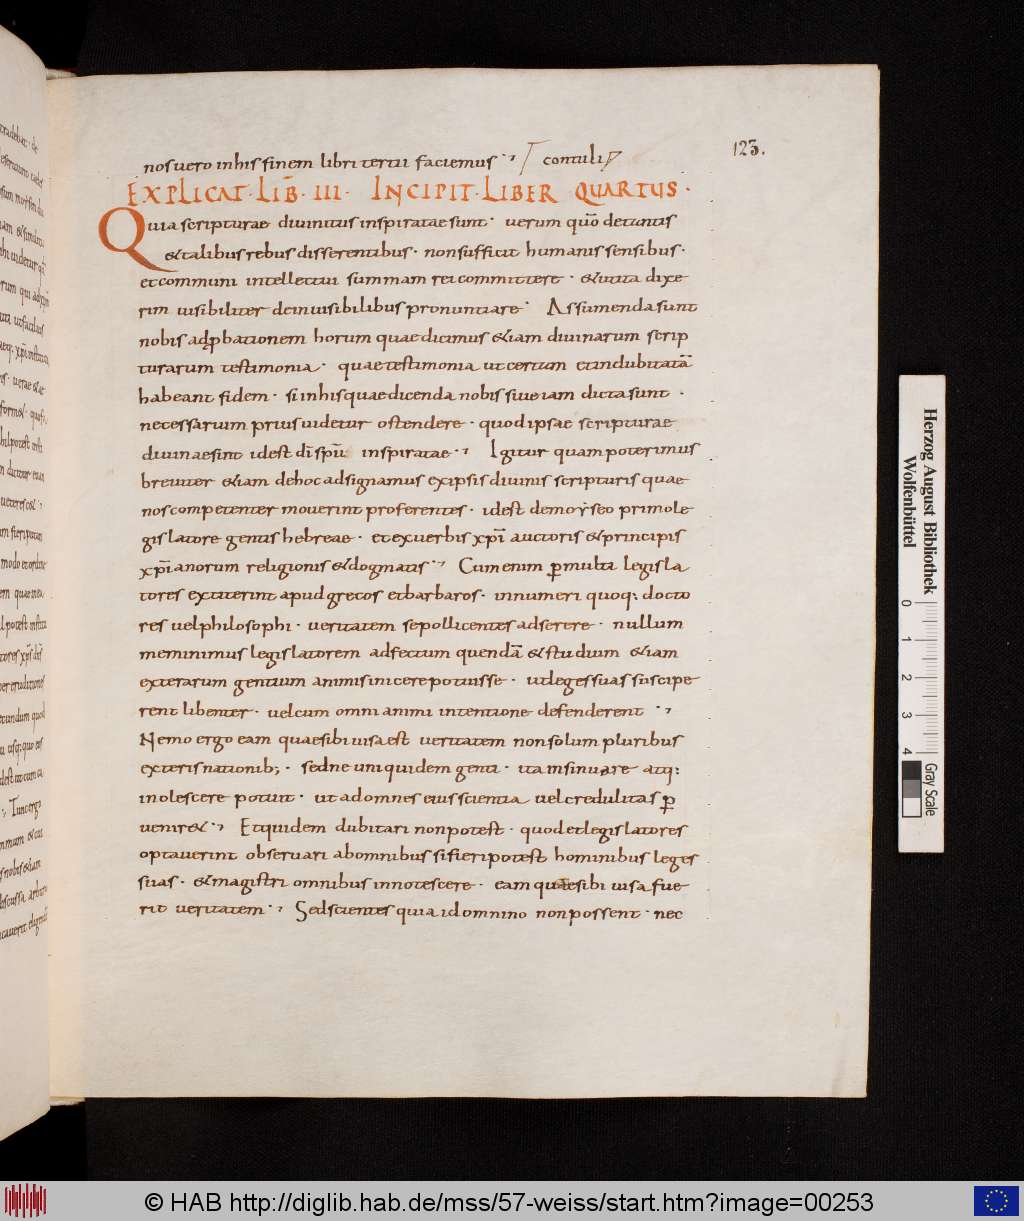 123.
nos uero in his finem libri tertii faciemus contuli
EXPLICAT· LIB̄· III· INCIPIT· LIBER QUARTUS·
Quia scripturae diuinitus inspiratae sunt· uerum quō de tantis
& talibus rebus disserentibus· non sufficit humanis sensibus·
et communi intellectui summam rei committere· & ut ita dixe
rim uisibiliter de inuisibilibus pronuntiare· Assumenda sunt
nobis ad ꝓbationem horum quae dicimus &iam diuinarum scrip
turarum testimonia· quae testimonia ut certam et indubitatā
habeant fidem· si in his quae dicenda nobis siue iam dicta sunt·
necessarium prius uidetur ostendere· quod ipsae scripturae
diuinae sint id est dī spū inspiratae· Igitur quam poterimus
breuiter &iam de hoc adsignamus ex ipsis diuinis scripturis quae
nos competenter mouerint proferentes· id est de moyseo primo le
gislatore gentis hebreae· et ex uerbis xp̄i auctoris & principis
xp̄ianorum religionis & dogmatis· Cum enim ꝑmulta legisla
tores extiterint apud grecos et barbaros· innumeri quoq: docto
res uel philosophi· ueritatem se pollicentes adserere· nullum
meminimus legislatorem adfectum quendā & studium &iam
exterarum gentium animis inicere potuisse· ut leges suas suscipe
rent libenter· uel cum omni animi intentione defenderent·
Nemo ergo eam quae sibi uisa est ueritatem non solum pluribus
exteris nationib;· sed ne uni quidem genti· ita insinuare atq:
inolescere potuit· ut ad omnes eius scientia uel credulitas ꝑ
uenir&· Et quidem dubitari non potest· quod et legislatores
optauerint obseruari ab omnibus si fieri potest hominibus leges
suas· & magistri omnibus innotescere· eam quae sibi uisa fue
rit ueritatem· Sed scientes quia id omnino non possent· nec
Herzog August Bibliothek
Wolfenbüttel
0 1 2 3 4
Gray Scale
© HAB http://diglib.hab.de/mss/57-weiss/start.htm?image=00253